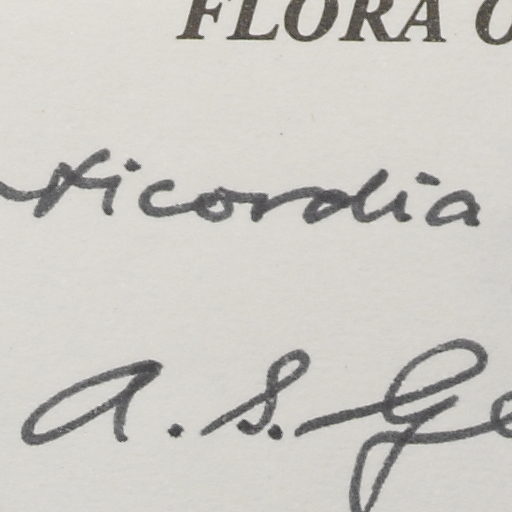 FLORA O
rticordia
A. S. Ge